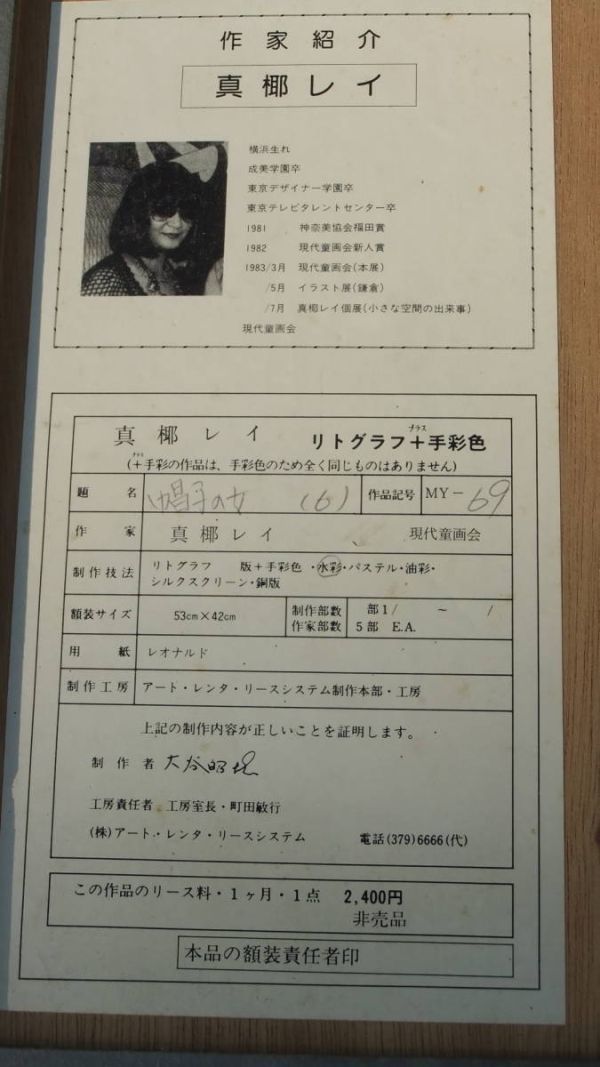 作家紹介
真椰レイ
横浜生れ
成美学園卒
東京デザイナー学園卒
東京テレビタレントセンター卒
1981 神奈美協会福田賞
1982 現代童画会新人賞
1983/3月 現代童画会(本展)
/5月 イラスト展(鎌倉)
/7月 真椰レイ個展(小さな空間の出来事)
現代童画会
真椰レイ リトグラフ+手彩色
プラス
プラス
(+手彩の作品は、手彩色のため全く同じものはありません)
題名 の女 (6) 作品記号 MY-69
作家 真椰レイ 現代童画会
制作技法 リトグラフ 版+手彩色・水彩・パステル・油彩・
シルクスクリーン・銅版
額装サイズ 53cm×42cm 制作部数 部1/ ~ /
作家部数 5部 E.A.
用紙 レオナルド
制作工房 アート・レンタ・リースシステム制作本部・工房
上記の制作内容が正しいことを証明します。
制作者
工房責任者 工房室長・町田敏行
(株)アート・レンタ・リースシステム 電話(379)6666(代)
この作品のリース料・1ヶ月・1点 2,400円
非売品
本品の額装責任者印